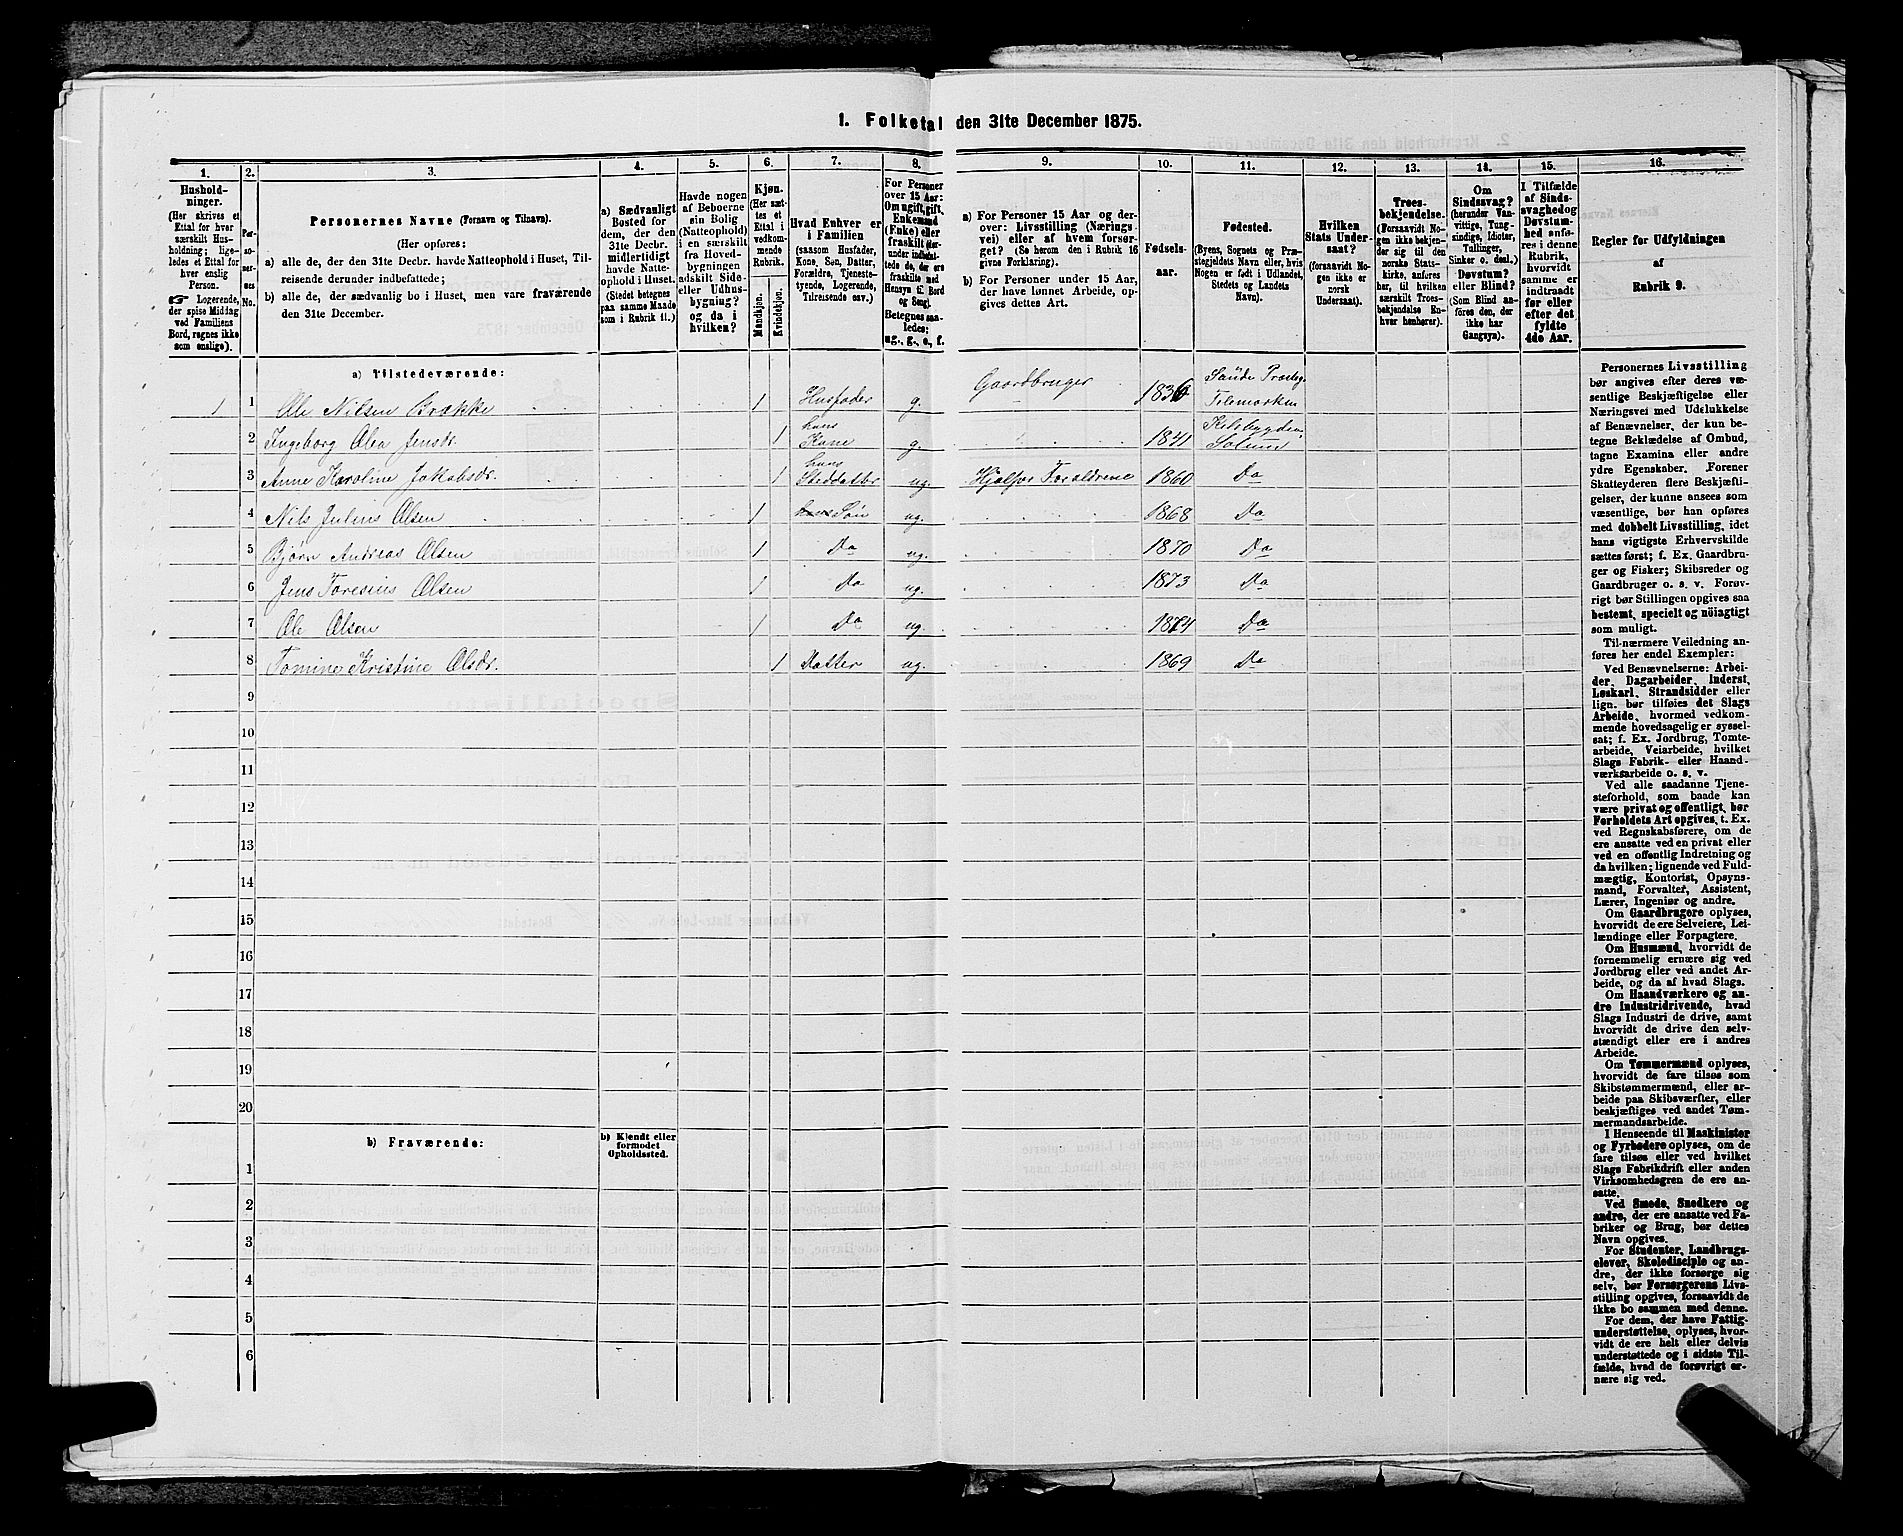 1. Folketal den 31te December 1875.
1.
2.
3.
4.
5.
6.
7.
8.
9.
10.
11.
12.
13.
14.
15.
16.
Hushold-
ninger.
(Her skrives et
Ettal for hver
særskilt Hus-
holdning; lige-
ledes et Ettal for
hver enslig
Person.
☞ Logerende,
der spise Middag
ved Familiens
Bord, regnes ikke
som enslige).
Per-
so-
ner-
nes
No.
Personernes Navne (Fornavn og Tilnavn).
(Her opføres:
a) alle de, der den 31te Decbr. havde Natteophold i Huset, Til-
reisende derunder indbefattede;
b) alle de, der sædvanlig bo i Huset, men vare fraværende
den 31te December.
a) Sædvanligt
Bosted for
dem, der den
31te Decbr.
midlertidigt
havde Natte-
ophold i Huset.
(Stedet betegnes
paa samme Maade
som i Rubrik 11.)
Havde nogen
af Beboerne
sin Bolig
(Natteophold)
i en særskilt
fra Hoved-
bygningen
adskilt Side-
eller Udhus-
bygning?
og da i
hvilken?
Kjøn.
(Her sæt-
tes et
Ettal i
vedkom-
mende
Rubrik.
Mandkjøn.
Kvindekjøn.
Hvad Enhver er
i Familien
(saasom Husfader,
Kone, Søn, Datter,
Forældre, Tjeneste-
tyende, Logerende,
Tilreisende osv.)
For Personer
over 15 Aar:
Om ugift, gift,
Enkemand
(Enke) eller
fraskilt (der-
under indbefat-
tede de, der ere
fraskilte med
Hensyn til Bord
og Seng).
Betegnes saa-
ledes:
ug., g., e., f.
a) For Personer 15 Aar og der-
over: Livsstilling (Nærings-
vei) eller af hvem forsør-
get? (Se herom den i Rubrik 16
givne Forklaring).
b) For Personer under 15 Aar,
der have lønnet Arbeide, op-
gives dettes Art.
Fødsels-
aar.
Fødested.
(Byens, Sognets og Præ-
stegjeldets Navn eller, hvis
Nogen er født i Udlandet,
Stedets og Landets
Navn).
Hvilken
Stats Under-
saat?
(forsaavidt No-
gen ikke er
norsk
Undersaat).
Troes-
bekjendelse.
(Forsaavidt No-
gen ikke bekjen-
der sig til den
norske Stats-
kirke, anføres
her, til hvilken
særskilt Troes-
bekjendelse En-
hver henhører).
Om
Sindssvag?
(herunder Van-
vittige, Tung-
sindige, Idioter,
Tullinger,
Sinker o. desl.)
Døvstum?
eller Blind?
(Som Blind an-
føres den, der
ikke har
Gangsyn).
I Tilfælde
af Sinds-
svaghed og
Døvstum-
hed anfø-
res i denne
Rubrik,
hvorvidt
samme er
indtraadt
før eller
efter det
fyldte
4de Aar.
Regler for Udfyldningen
af
Rubrik 9.
a) Tilstedeværende:
1 1 Ole Nilsen Brække 1 Husfader g. Gaardbruger 1836 Saude Præsteg. Telemarken
2 Ingeborg Olea Jensdr. 1 hans Kone g. 1841 Solund
3 Anne Karoline Jakobsdr. 1 hans Steddatter ug. Hjælper Forældrene 1860 Do
4 Nils Julius Olsen 1 hans Søn ug. 1868 Do
5 Bjørn Andreas Olsen 1 Do ug. 1870 Do
6 Jens Toresius Olsen 1 Do ug. 1873 Do
7 Ole Olsen 1 Do ug 1874 Do
8 Tomine Kristine Olsdr. 1 Datter ug. 1869 Do
9
10
11
12
13
14
15
16
17
18
19
20
b) Fraværende:
b) Kjendt eller
formodet
Opholdssted.
1
2
3
4
5
6
Personernes Livsstilling
bør angives efter deres væ-
sentlige Beskjæftigelse eller
Næringsvei med Udelukkelse
af Benævnelser, der kun be-
tegne Beklædelse af Ombud,
tagne Examina eller andre
ydre Egenskaber. Forener
Skatteyderen flere Beskjæfti-
gelser, der kunne ansees som
væsentlige, bør han opføres
med dobbelt Livsstilling, idet
hans vigtigste Erhvervskilde
sættes først; f. Ex. Gaardbru-
ger og Fisker; Skibsreder og
Gaardbruger o. s. v. Forøv-
rigt bør Stillingen opgives saa
bestemt, specielt og nöiagtigt
som muligt.
Til nærmere Veiledning an-
føres her endel Exempler:
Ved Benævnelserne: Arbei-
der, Dagarbeider, Inderst,
Løskarl, Strandsidder eller
lign. bør tilføies det Slags
Arbeide, hvormed vedkom-
mende hovedsagelig er syssel-
sat; f. Ex. Jordbrug, Tomte-
arbeide, Veiarbeide, hvilket
Slags Fabrik- eller Haand-
værksarbeide o. s. v.
Ved alle saadanne Tjene-
steforhold, som baade kan
være privat og offentligt, bør
Forholdets Art opgives, t. Ex.
ved Regnskabsførere, om de
ere ansatte ved en privat eller
ved en offentlig Indretning og
da hvilken; lignende ved Fuld-
mægtig, Kontorist, Opsyns-
mand, Forvalter, Assistent,
Lærer, Ingeniør og andre.
Om Gaardbrugere oplyses,
hvorvidt de ere Selveiere, Lei-
lændinge eller Forpagtere.
Om Husmænd, hvorvidt de
fornemmelig ernære sig ved
Jordbrug eller ved andet Ar-
beide, og da af hvad Slags.
Om Haandværkere og an-
dre Industridrivende, hvad
Slags Industri de drive, samt
hvorvidt de drive den selv-
stændigt eller ere i andres
Arbeide.
Om Tømmermænd oplyses,
hvorvidt de fare tilsøs som
Skibstømmermænd, eller ar-
beide paa Skibsværfter, eller
beskjæftiges ved andet Tøm-
mermandsarbeide.
I Henseende til Maskinister
og Fyrbødere oplyses, om de
fare tilsøs eller ved hvilket
Slags Fabrikdrift eller anden
Virksomhedsgren de ere an-
satte.
Ved Smede, Snedkere og
andre, der ere ansatte ved Fa-
briker og Brug, bør dettes
Navn opgives.
For Studenter, Landbrugs-
elever, Skoledisciple og an-
dre, der ikke forsørge sig
selv, bør Forsørgerens Livs-
stilling opgives, forsaavidt de
ikke bo sammen med denne.
For dem, der have Fattig-
understøttelse, oplyses, hvor-
vidt de ere helt eller delvis
understøttede og i sidste Til-
fælde, hvad de forøvrigt er-
nære sig ved.